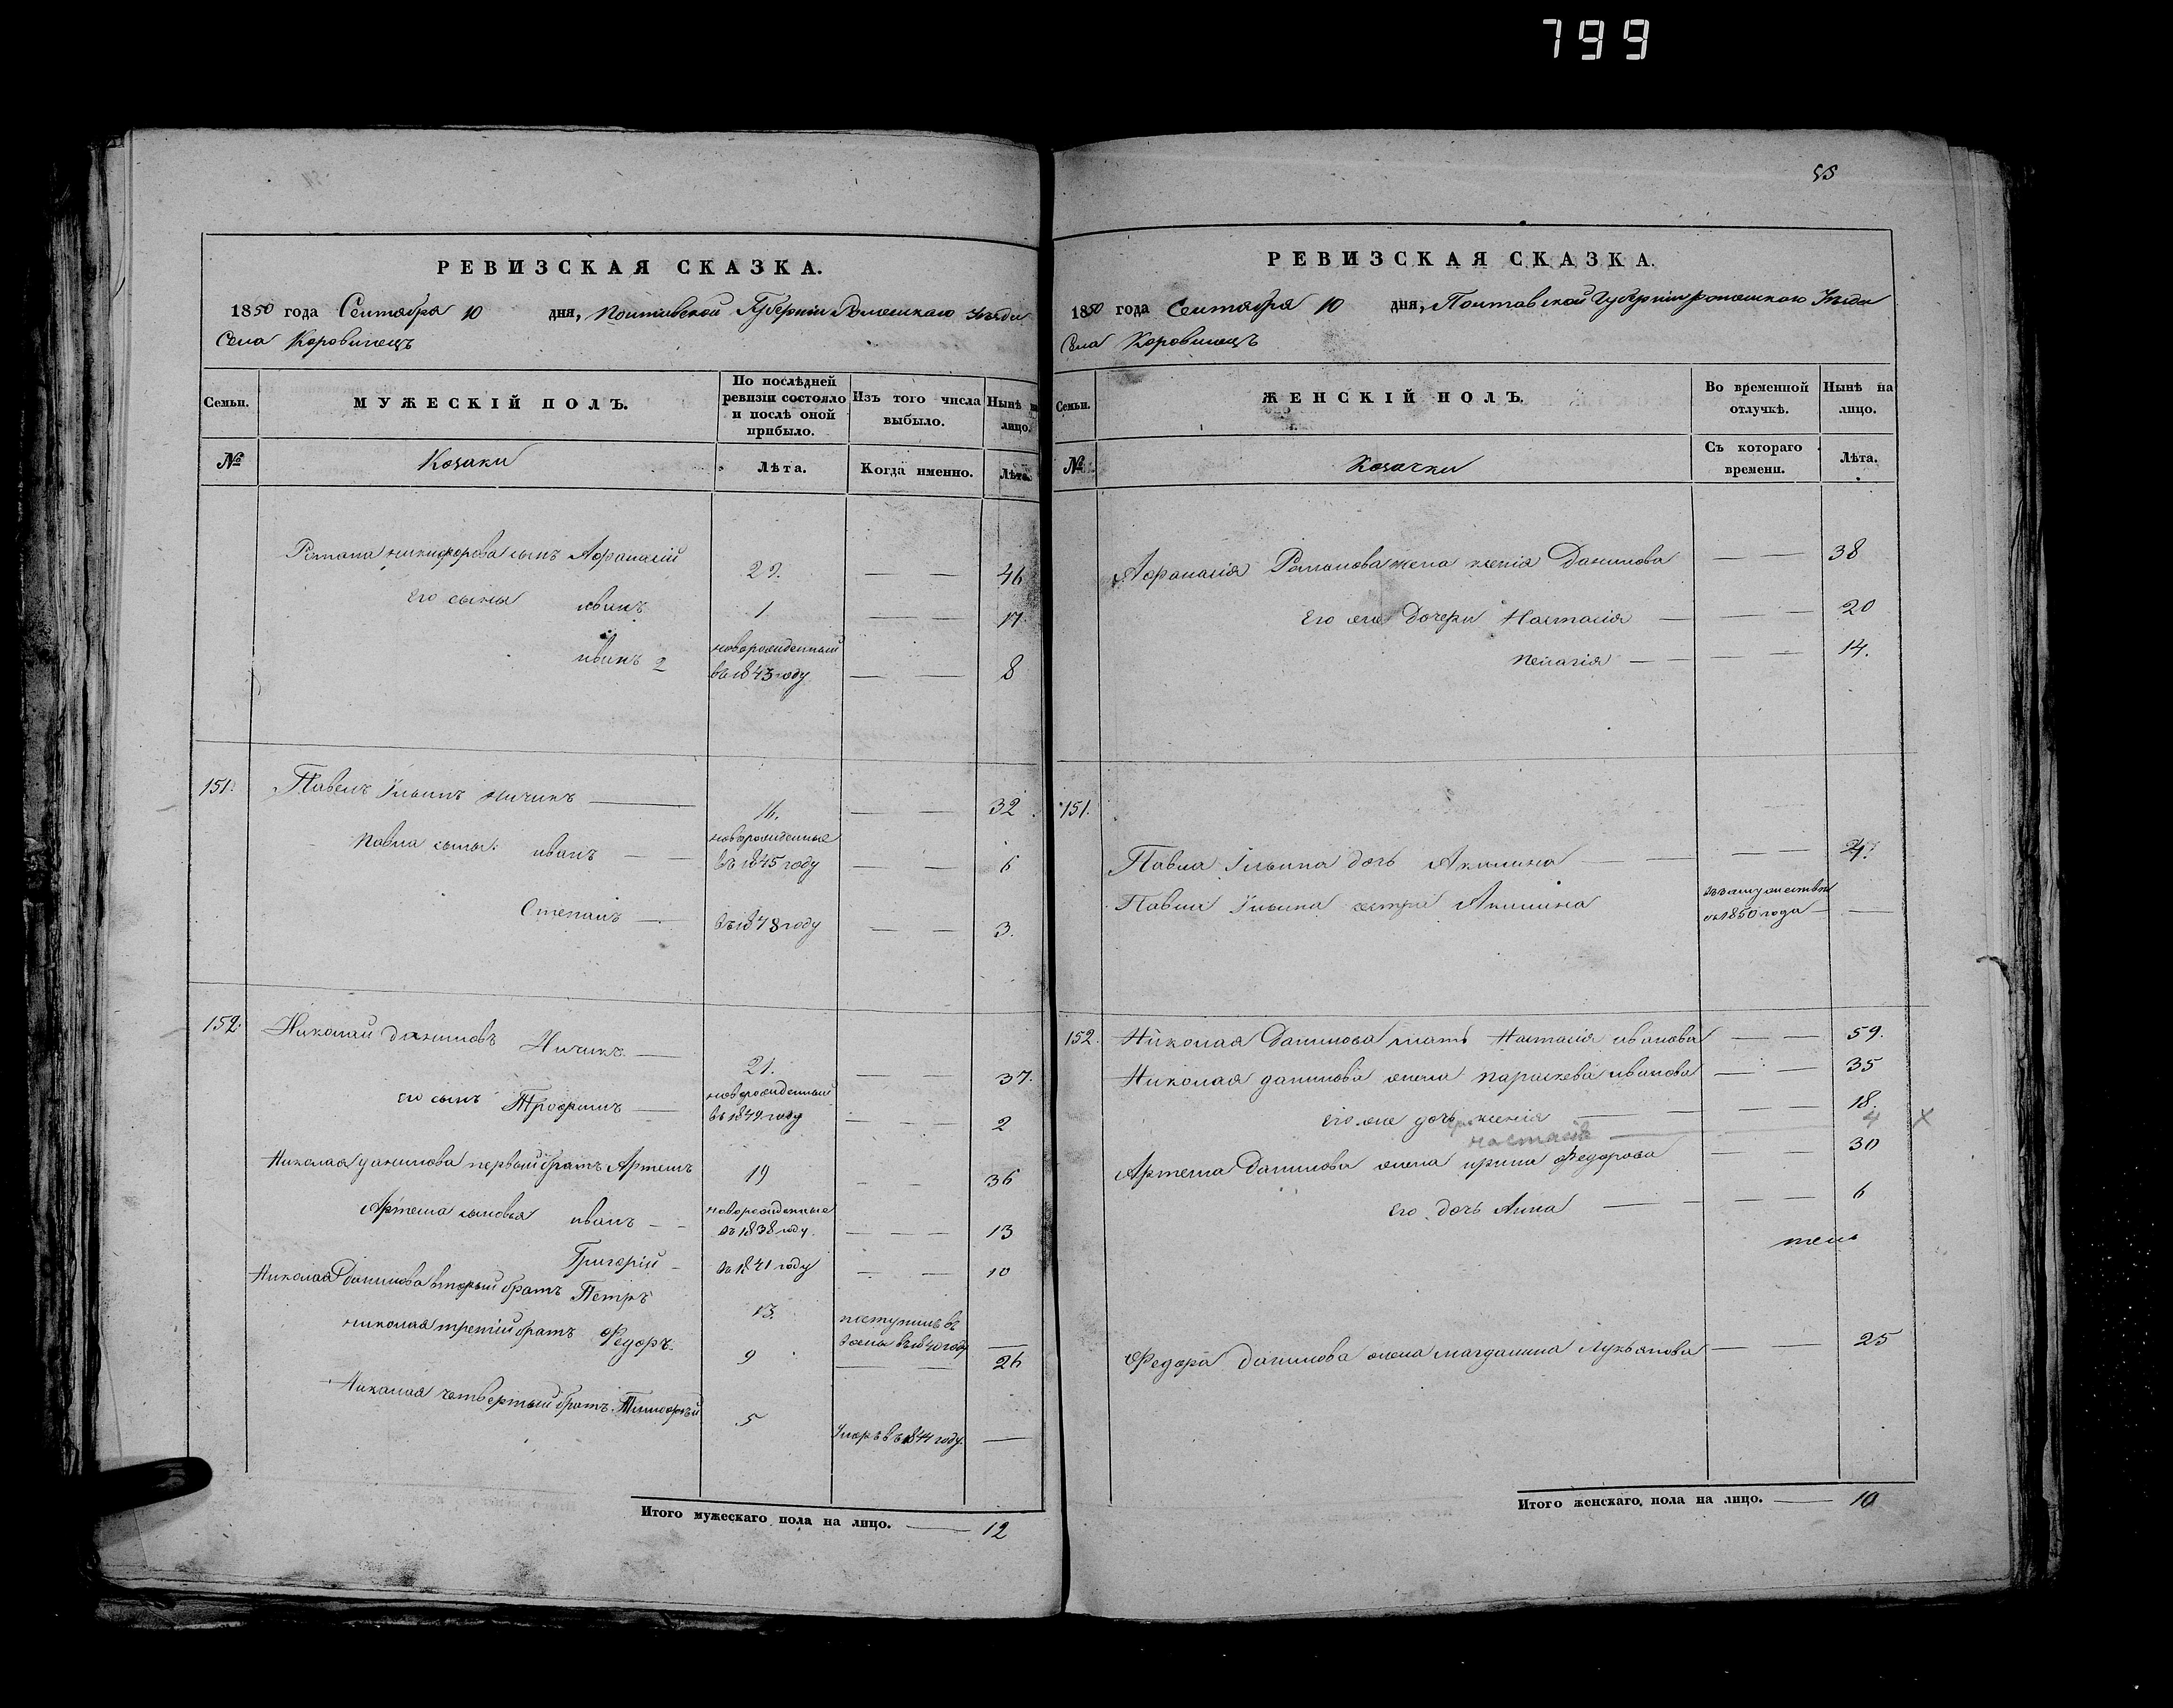 799
РЕВИЗСКАЯ СКАЗКА.
1850 года Сентября 10 дня, Полтавской Губерніи Роменскаго Уезда
Села Коровинецъ
Семьи.
МУЖЕСКІЙ ПОЛЪ.
По послѣдней ревизіи состояло и послѣ оной прибыло.
Изъ того числа выбыло.
Нынѣ на лицо.
№
Козаки
Лѣта.
Когда именно.
Лѣта.
Романа никифорова сынъ Афанасій 29. — — 46
Его сыны иванъ 1 — — 17
иванъ 2 новорожденный въ 1843 году — — 8
151. Павелъ Ильинъ Ничикъ — 16. — — 32
Павла сыны: иванъ — — новорожденные въ 1845 году — — 6
Степанъ — въ 1848 году — — 3.
152. Николай даниловъ Ничикъ — 21. — — 37.
его сынъ Трофимъ — новорожденный въ 1849 году — — — 2
Николая данилова первый братъ Артемъ 19 — — 36
Артема сыновья иванъ — — новорожденные въ 1838 году. — — — 13
Григорій — въ 1841 году — — 10
Николая Данилова вторый братъ Петръ 13. поступилъ въ 1840 году —
николая третій братъ Федоръ. 9 — 26
Николая четвертый братъ Тимофѣй 5 Умеръ въ 1844 году. —
Итого мужескаго пола на лицо. — 12
55
РЕВИЗСКАЯ СКАЗКА.
1850 года Сентября 10 дня, Полтавской Губерніи роменскаго Уезда
Села Коровинецъ
Семьи.
ЖЕНСКІЙ ПОЛЪ.
Во временной отлучкѣ.
Нынѣ на лицо.
№
Козачки
Съ котораго времени.
Лѣта.
Афанасія Романова жена ксенія Данилова — — 38
Его же дочери Настасія — — — 20
пелагія — — — 14.
151.
Павла Ильина дочь Акилина — — —
Павла Ильина сестра Акилина въ замужестве съ 1850 года — —
152. Николая Данилова мать Настасія иванова — — 59.
Николая данилова жена параскева иванова — — 35
Его же дочь ксенія — — — 18.
настасія — 4 х
Артема Данилова жена ирина Федорова — — 30
Его дочь Анна — — — 6
Федора Данилова жена магдалина Лукьянова — — 25
Итого женскаго пола на лицо. — 10